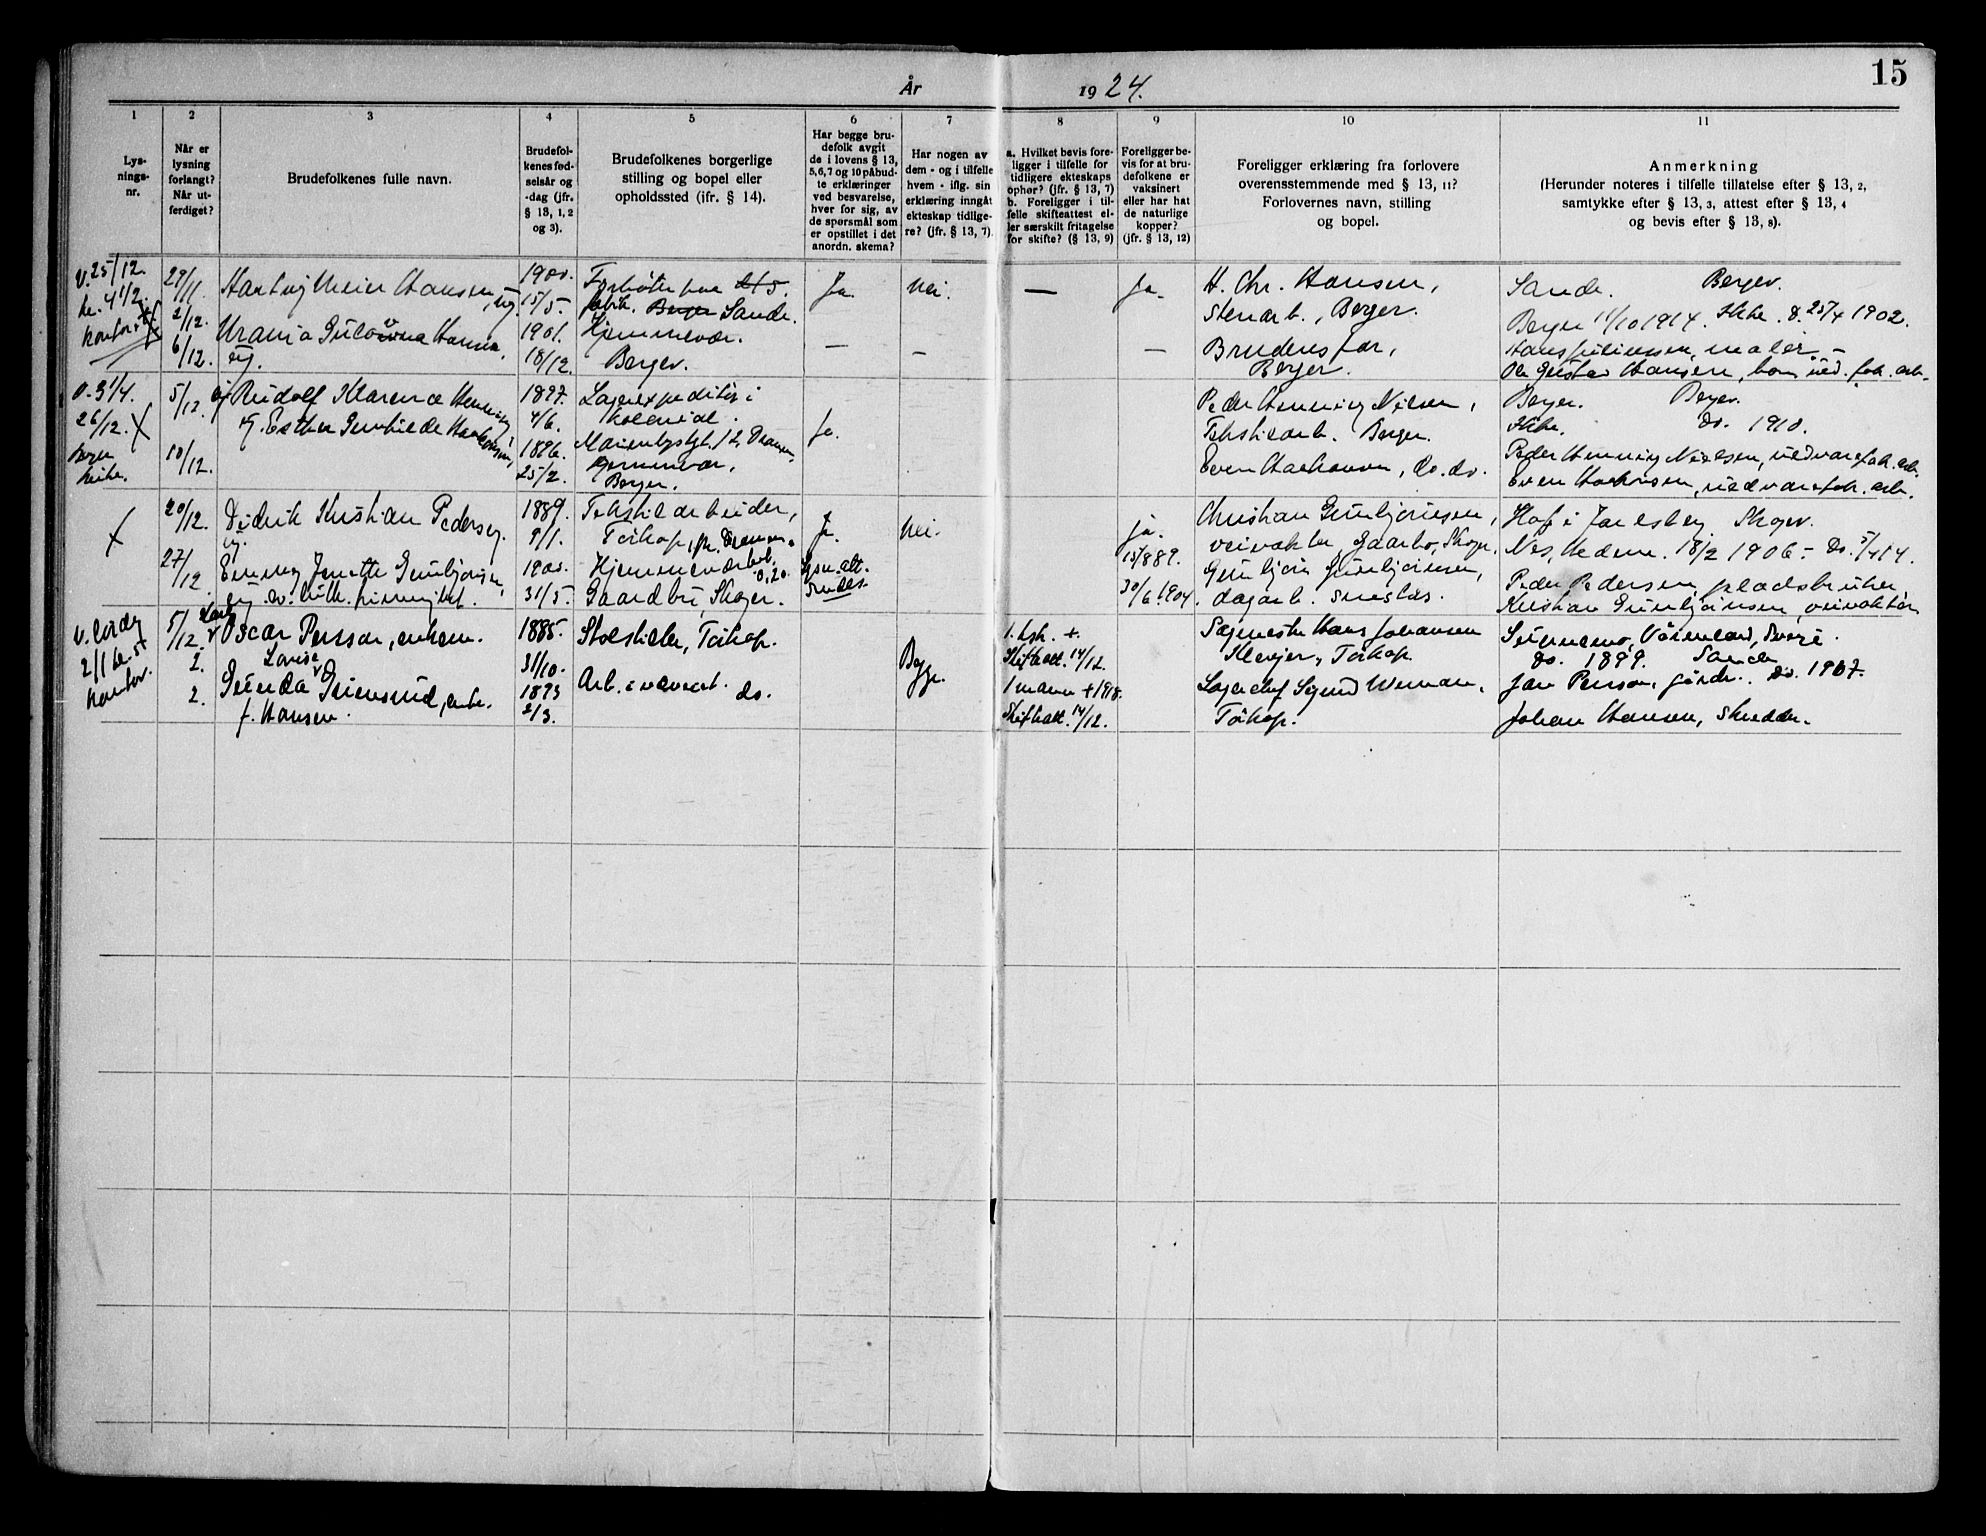 15
År 1924.
1
2
3
4
5
6
7
8
9
10
11
Lys-
nings-
nr.
Når er
lysning
forlangt?
Når ut-
ferdiget?
Brudefolkenes fulle navn.
Brudefol-
kenes fød-
selsår og
-dag (jfr.
§ 13, 1, 2
og 3).
Brudefolkenes borgerlige
stilling og bopel eller
opholdssted (ifr. § 14).
Har begge bru-
defolk avgit
de i lovens § 13,
5,6,7 og 10 påbud-
te erklæringer
ved besvarelse,
hver for sig, av
de spørsmål som
er opstillet i det
anordn. skema?
Har nogen av
dem - og i tilfelle
hvem - iflg. sin
erklæring inngåt
ekteskap tidlige-
re? (jfr. § 13, 7).
a. Hvilket bevis fore-
ligger i tilfelle for
tidligere ekteskaps
ophør? (jfr. § 13, 7)
b. Foreligger i til-
felle skifteattest el-
ler særskilt fritagelse
for skifte? (§ 13, 9)
Foreligger be-
vis for at bru-
defolkene er
vaksinert
eller har hat
de naturlige
kopper?
(jfr. § 13, 12)
Foreligger erklæring fra forlovere
overensstemmende med § 13, 11?
Forlovernes navn, stilling
og bopel.
Anmerkning
(Herunder noteres i tilfelle tillatelse efter § 13, 2,
samtykke efter § 13, 3, attest efter § 13, 4
og bevis efter § 13, 8).
v. 25/12.
kl. 4 1/2.
kontor
29/11
2/12.
6/12.
Hartvig Meier Hansen, ug.
Urania Hansen,
ug.
1900.
15/5.
1901.
18/12.
fabrik. Berger Sande.
Hjemmevær.
Berger.
Ja.
—
Nei.
—
—
Ja.
—
H. Chr. Hansen,
Stenarb., Berger.
Brudens far,
Berger.
Sande. Berger.
Berger 11/10 1914. 25/4 1902.
maler —
Hansen,
v. 3 1/4.
26/12.
Berger
kirke.
5/12.
10/12.
Rudolf Klarence Henning
ug. Esther Gunhilde
1897.
4/6.
1896.
25/2.
Lagerekspeditør i
Kolonial.
Hjemmevær,
Berger.
Ja.
Peder Henning Nilsen,
Tekstilarb. Berger.
Even Haakonsen, do. do.
Berger. Berger.
do. 1910.
Peder Henning Nielsen, uldvarefab. arb.
Even Haakonsen, uldvarefab. arb.
20/12.
27/12
Didrik Kristian Pedersen
ug.
Emmy Jenette Gunbjørnsen,
1889.
9/1.
1900.
31/5.
Tekstilarbeider,
Tørkop, pr. Drammen.
Hjemmeværende
Gaardbu, Skoger.
Ja.
Nei.
ja.
15/8 89.
30/6 1904.
Christian Gunbjørnsen,
veivokter, Gaarbo, Skoger,
Gunbjørn Gunbjørnsen,
dagarb.
Hof i Jarlsberg. Skoger.
Nes, Hedem. 18/2 1906 — Do.
Peder Pedersen, pladsbruker
Kristian Gunbjørnsen, veivokter
v. lørdag
2/1 kl. 5
kontor.
5/12.
2.
2.
Karl
Oscar Persson, enkem.
Lovise
Gunda Guensrud, enke.
f. Hansen.
1885.
31/10.
1893
2/3.
Stolstikker, Tørkop.
Arb. do.
Begge.
1. hst. +.
Skifteatt. 14/12.
1 mann + 1918.
Skifteatt. 14/12.
Sagmester Hans Johansen
Klevjer, Tørkop.
Lagerchef Sigurd Werman,
Tørkop.
Sverige
do. 1899. Sande Do. 1907.
Jan Persson, gårdbr.
Johan Hansen, skredder.